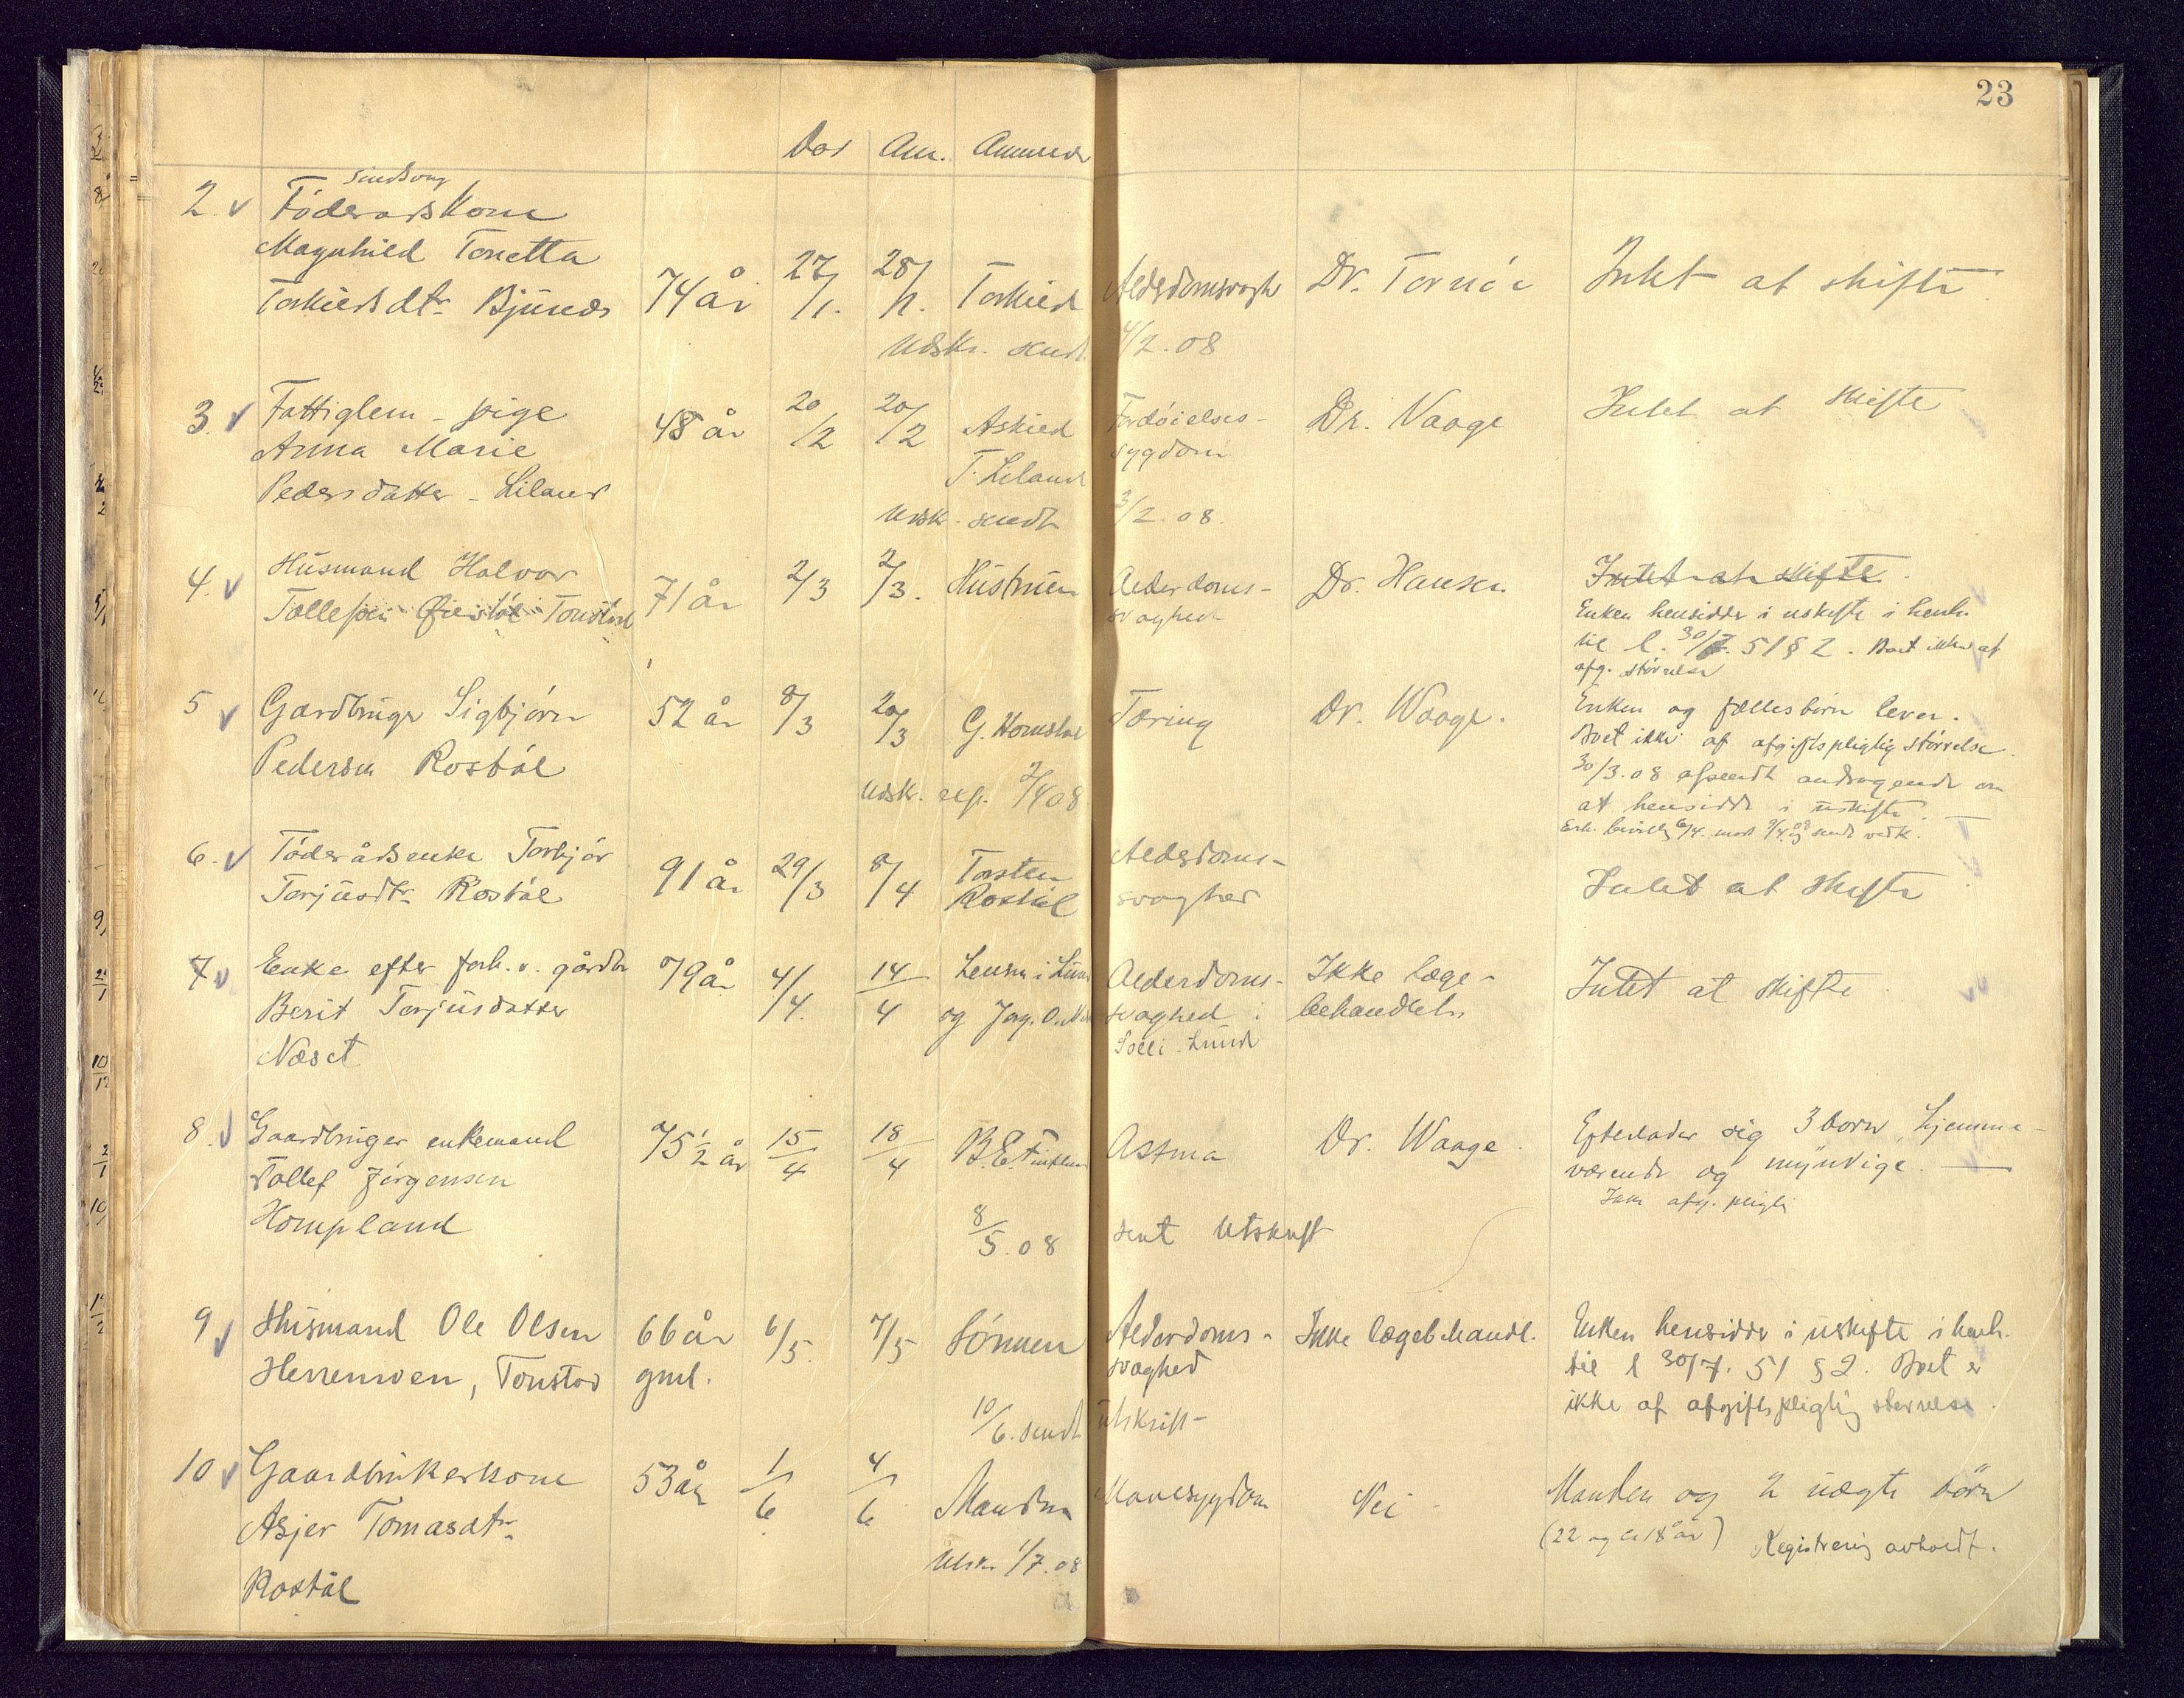 23
Død Anm. Anmeldr
2. v Føderådskone
Magnhild Tonetta
Torkildsdtr Bjunes 74 år 27/1. 28/1. Torkild Alderdomssvagh Dr. Tornøe Intet at skifte.
Udskr. sendt 4/2.08
3. v Fattiglem - pige
Anna Marie 48 år 20/2 20/2 Askild Fordøielses- Dr. Vaage Intet at skifte
Pedersdatter - Liland T. Liland sygdom
Udsk. sendt 3/2.08.
4. v Husmand Halvor 71 år 2/3 2/3. Hustruen Alderdoms- Dr. Hansen Intet at skifte.
Tollefsen Øiestøl Tonstad svaghed
Enken hensidder i uskifte i henh.
til l. 30/7. 51 § 2. Boet ikke af
afg. størrelse
5 v Gardbruger Sigbjørn 52 år 8/3 20/3 G. Homstøl Tæring Dr. Waage. Enken og fællesbørn lever.
Pedersen Rostøl Boet ikke af afgiftspligtig størrelse.
Udskr. exp. 2/4 08 30/3.08 afsendt andragende om
at hensidde i uskifte.
6. v Føderådsenke Torbjør 91 år 29/3 8/4 Torsten Alderdoms-
Terjusdtr Rostøl Rostøl svaghed Intet at skifte
7 v Enke efter forh. v. gårdbr 79 år 4/4. 14/4 Lensm i Lund Alderdoms- Ikke læge- Intet at skifte.
Berit Terjusdatter og Jørg. svaghed i behandlet.
Næset Lund
8. v Gaardbruger enkemand 75 1/2 år 15/4 18/4 B.E. Fintland Astma Dr. Waage. Efterlader sig 3 børn, hjemme-
Tollef Jørgensen værende og myndige.
Hompland Ikke afg. pligti
8/5.08 sent utskrift
9 v Husmand Ole Olsen 66 år 6/5. 7/5 Sønnen Alderdoms- Ikke lægebehandl. Enken hensidder i uskifte i henh.
Herremoen, Tonstad gml. svaghed til l 30/7. 51 § 2. Boet er
10/6. sendt utskrift- ikke af afgiftspligtig størrelse.
10 v Gaardbrukerkone 53 år 1/6 4/6 Manden Mavesygdom Nei - Manden og 2 ægte børn
Asjer Tomasdtr (22 og ca 18 år) Registrering avholdt.
Rostøl Utskr 1/7.08